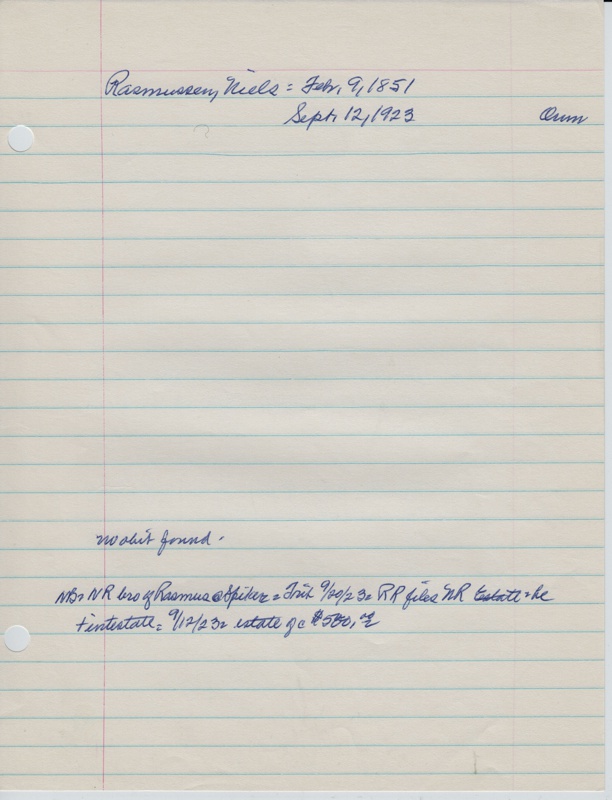 Rasmussen, Niels = Feb. 9, 1851
Sept. 12, 1923 Orum
no obit found.
NB = NR bro of Rasmus @ Spiker = Trib 9/20/23 = RR files NR Estate = he
+ intestate = 9/12/23 = estate of c $500.